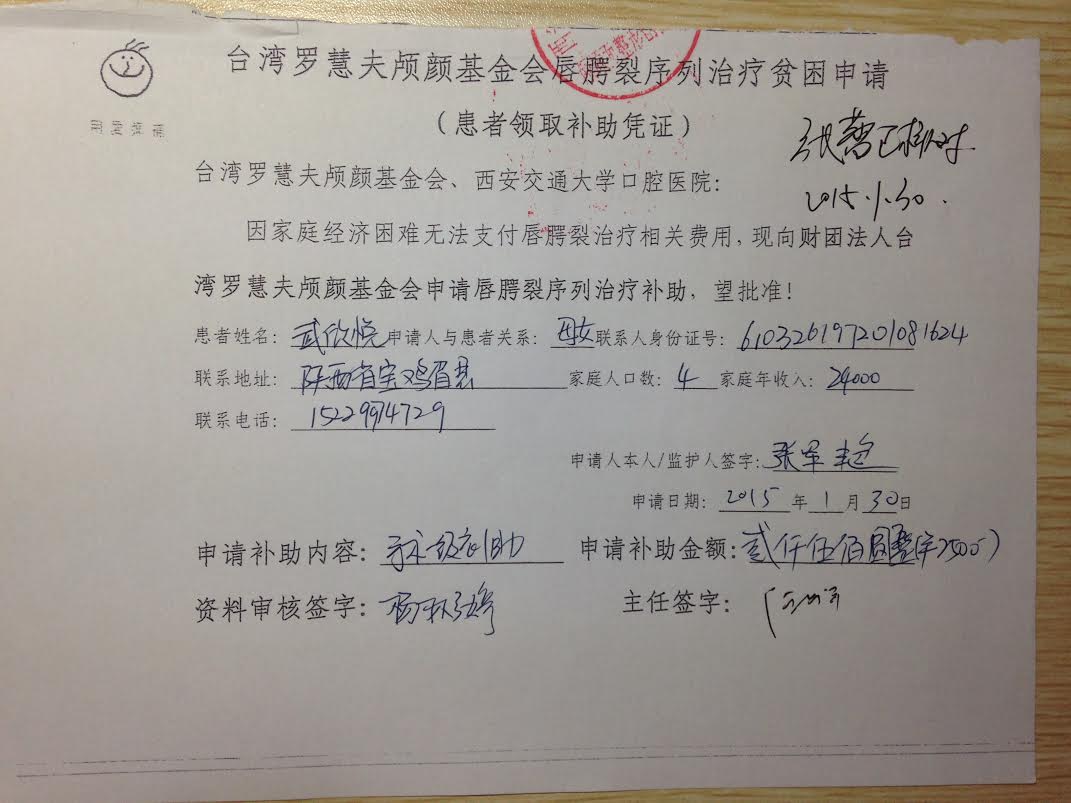 台湾罗慧夫颅颜基金会唇腭裂序列治疗贫困申请
（患者领取补助凭证）
用爱弥补
张蕾已核对
2015.1.30.
台湾罗慧夫颅颜基金会、西安交通大学口腔医院：
因家庭经济困难无法支付唇腭裂治疗相关费用，现向财团法人台
湾罗慧夫颅颜基金会申请唇腭裂序列治疗补助，望批准！
患者姓名：武欣悦 申请人与患者关系：母女 联系人身份证号：610326197201081624
联系地址：陕西省宝鸡眉县 家庭人口数：4 家庭年收入：24000
联系电话：15229974729
申请人本人/监护人签字：张军
申请日期：2015 年 1 月 30 日
申请补助内容：手术补助 申请补助金额：贰仟伍佰圆整（￥2500）
资料审核签字：杨 主任签字：